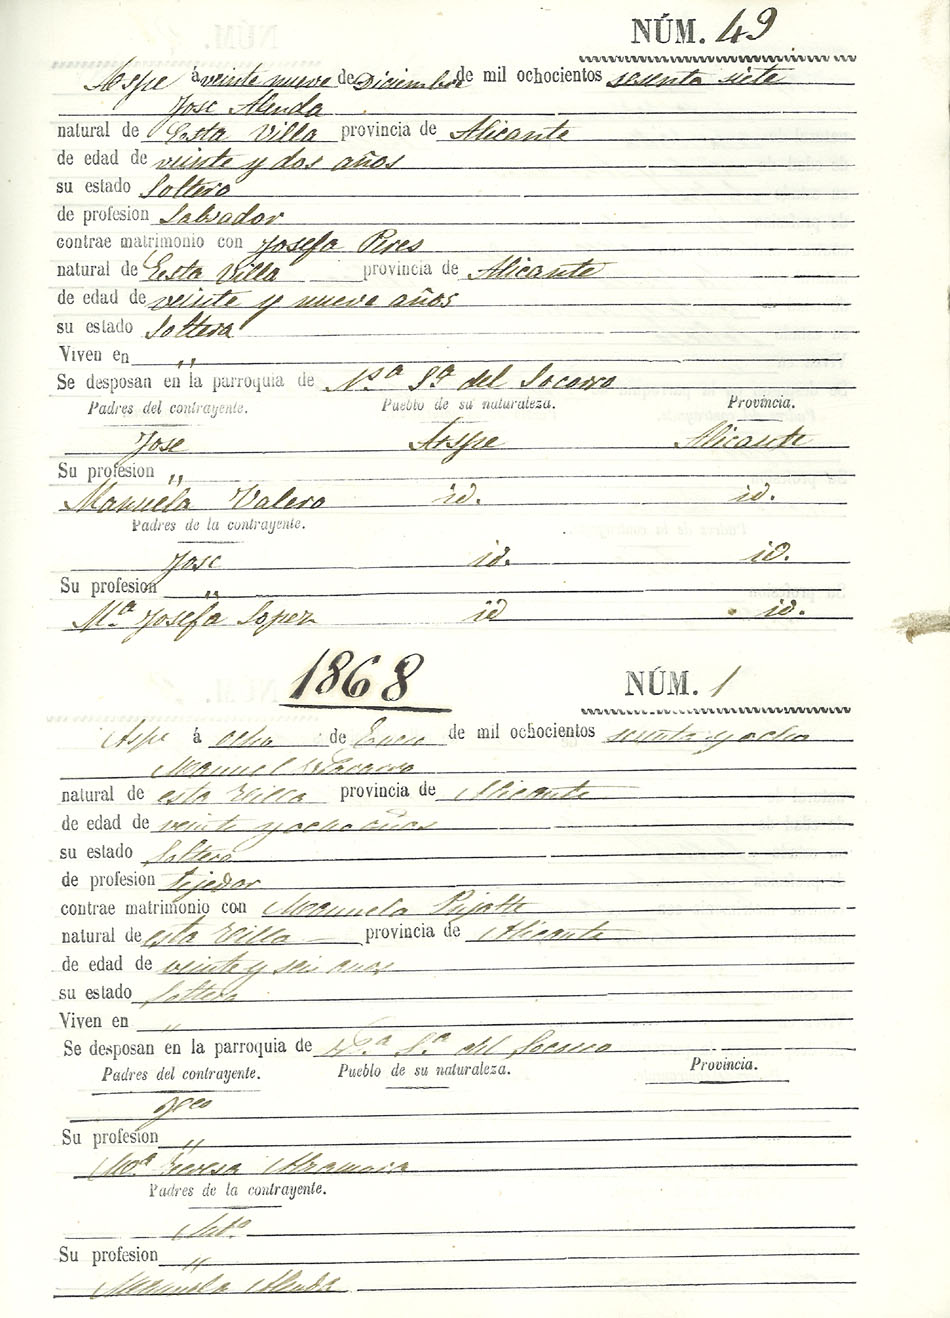 NÚM. 49
Aspe á veinte nueve de Diciembre de mil ochocientos sesenta siete
Jose Alenda
natural de Esta Villa provincia de Alicante
de edad de veinte y dos años
su estado Soltero
de profesion Labrador
contrae matrimonio con Josefa Peres
natural de Esta Villa provincia de Alicante
de edad de veinte y nueve años
su estado Soltera
Viven en "
Se desposan en la parroquia de Nsª Sª del Socorro
Padres del contrayente. Pueblo de su naturaleza. Provincia.
Jose Aspe Alicante
Su profesion "
Manuela Valero id. id.
Padres de la contrayente.
Jose id. id.
Su profesion "
Mª Josefa Lopez id id.
1868
NÚM. 1
Aspe á ocho de Enero de mil ochocientos sesenta y ocho
Manuel
natural de esta Villa provincia de Alicante
de edad de veinte y ocho años
su estado Soltero
de profesion tejedor
contrae matrimonio con Manuela Pujalte
natural de esta Villa provincia de Alicante
de edad de veinte y seis años
su estado Soltera
Viven en "
Se desposan en la parroquia de Nª Sª del Socorro
Padres del contrayente. Pueblo de su naturaleza. Provincia.
Su profesion "
Mª Teresa
Padres de la contrayente.
Su profesion "
Manuela Alenda